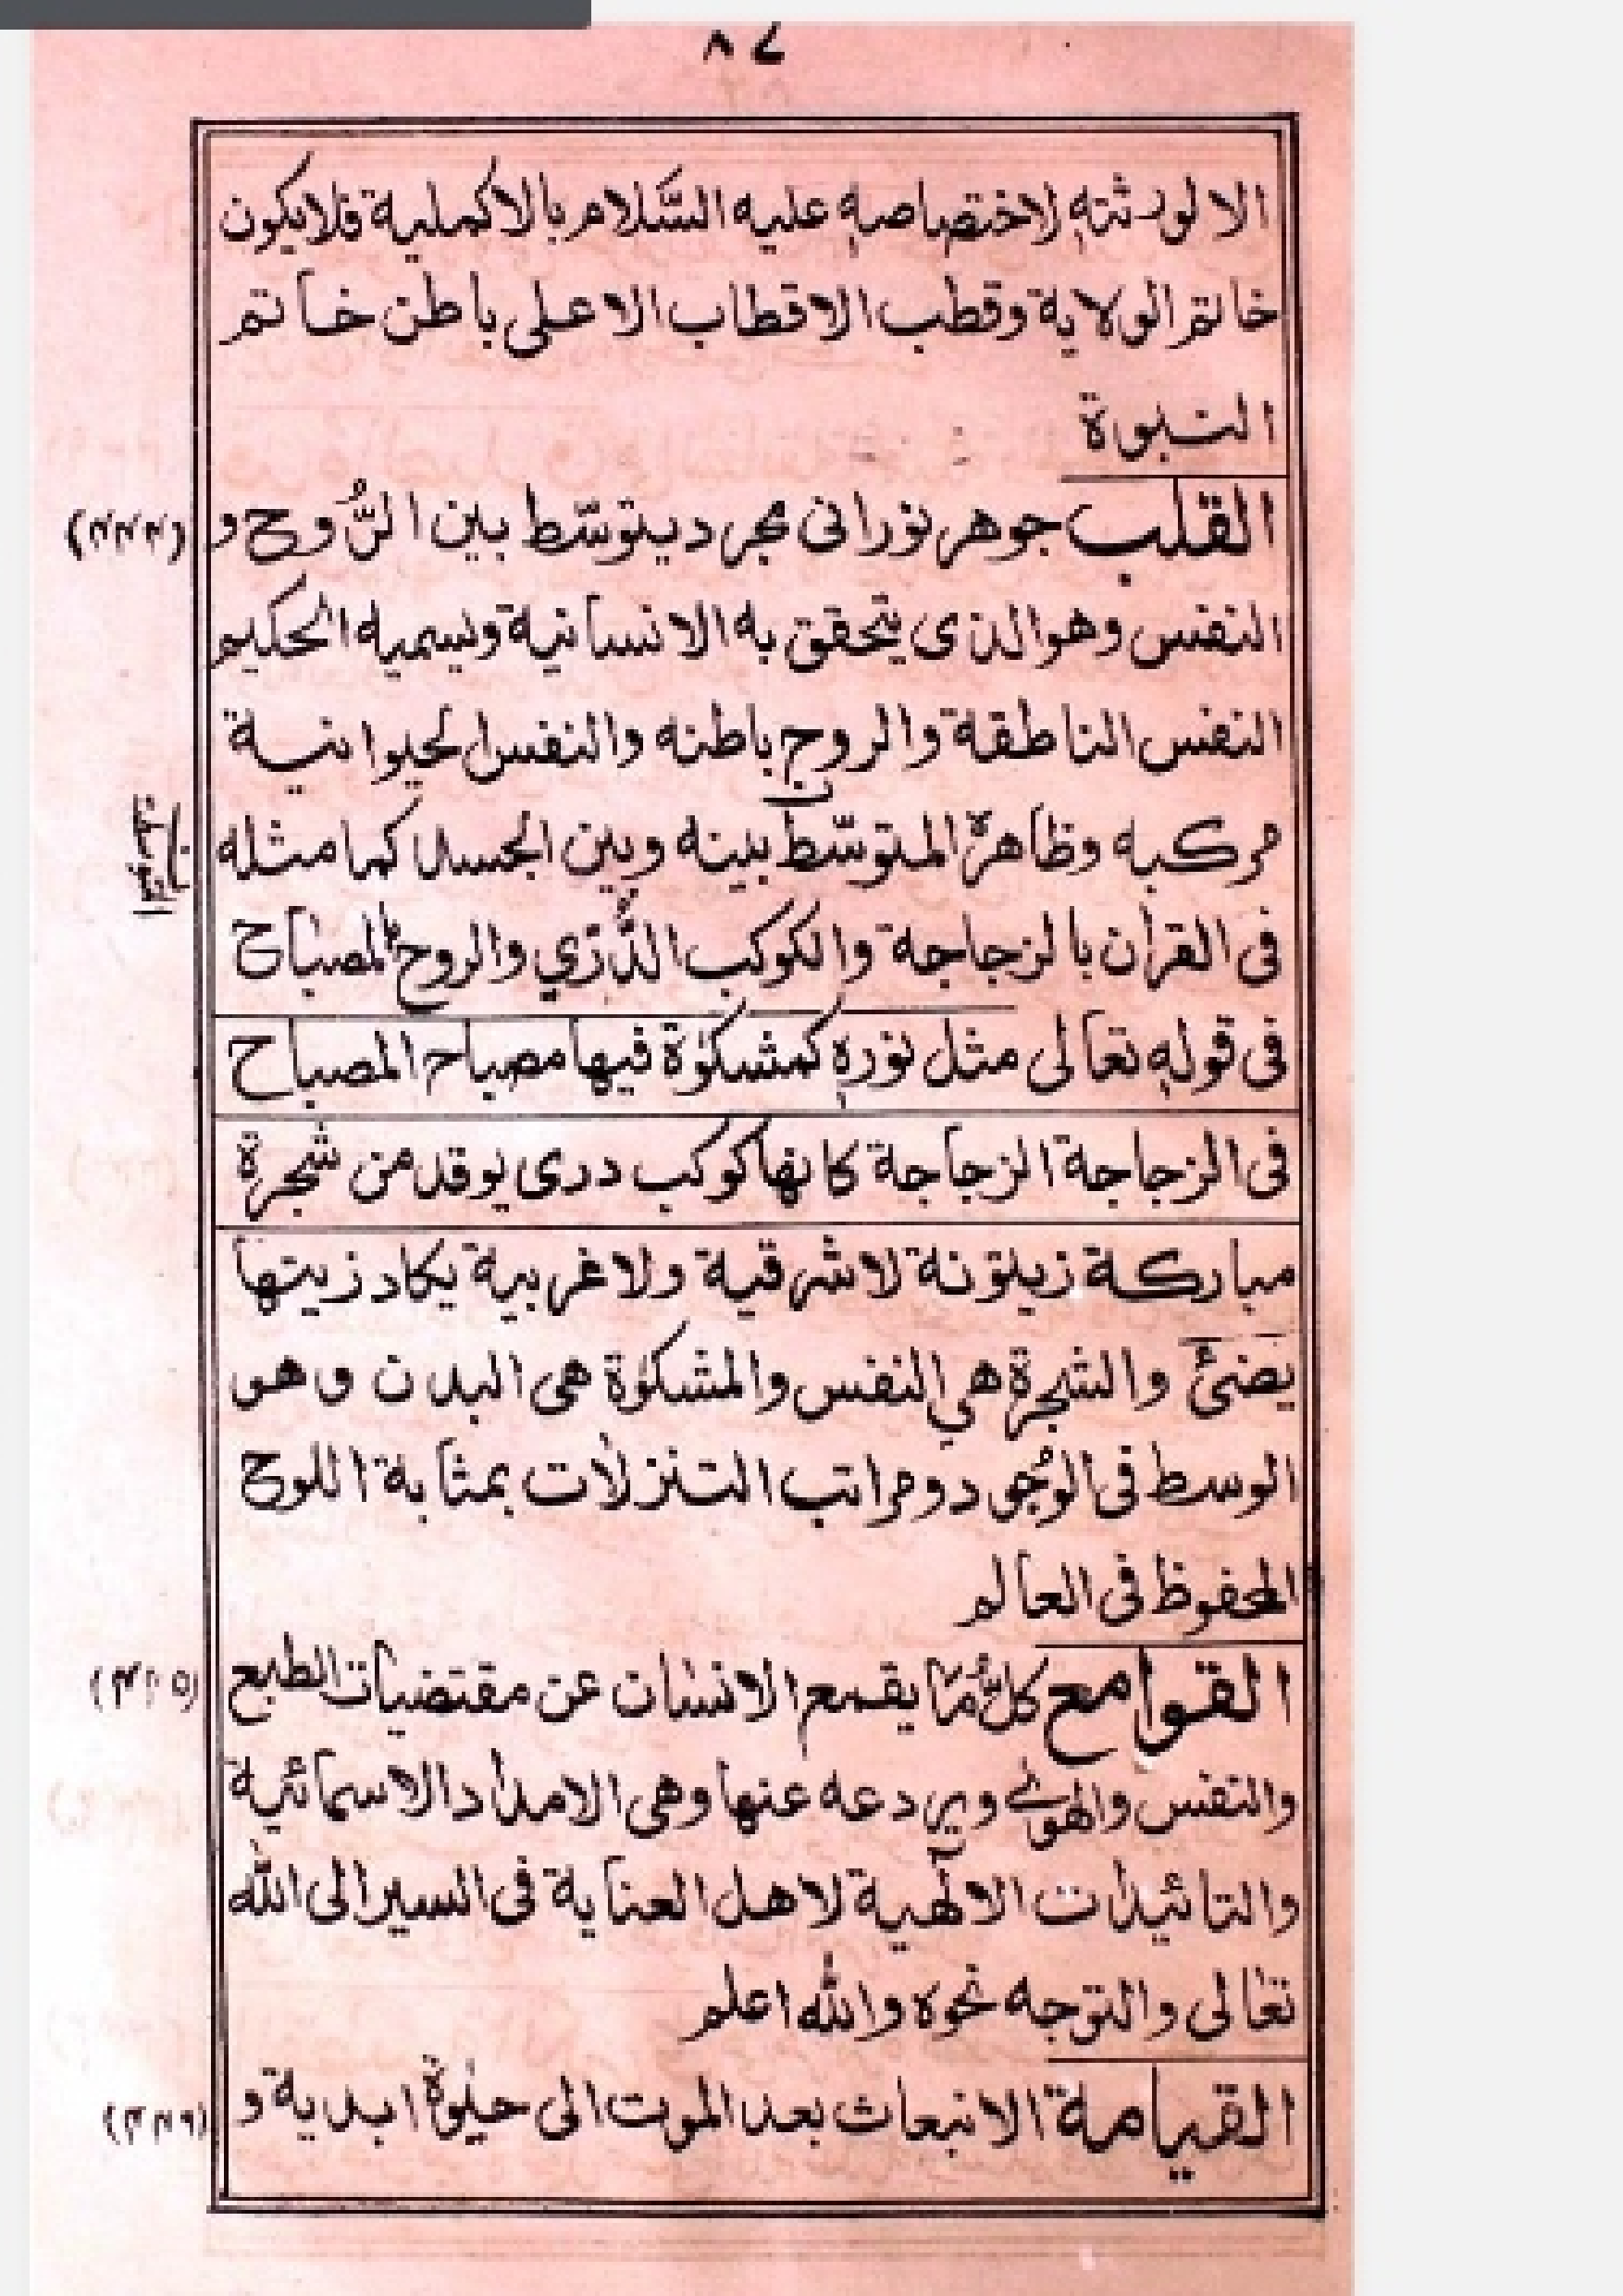 ٨٧
الا لورثته لاختصاصه عليه السَّلام بالاكملية فلايكون
خاتم الولاية وقطب الاقطاب الاعلى باطن خاتم
النبوة
القلب جوهر نورانى مجرد يتوسّط بين الرُّوح و
النفس وهو الذى يتحقق به الانسانية ويسميه الحكيم
النفس الناطقة والروح باطنه والنفس الحيوانية
مركبه وظاهرة المتوسّط بينه وبين الجسد كما مثله
المتوسطة
فى القرأن بالزجاجة والكوكب الدُّرّي والروح بالمصباح
فى قوله تعالى مثل نوره كمشكوٰة فيها مصباح المصباح
فى الزجاجة الزجاجة كانها كوكب درى يوقد من شجرة
مباركة زيتونة لا شرقية ولا غربية يكاد زيتها
يضئ والشجرة هي النفس والمشكوٰة هى البدن وهو
الوسط فى الوُجود ومراتب التنزلات بمثابة اللوح
المحفوظ فى العالم
القوامع كلُّ مَا يقمع الانسان عن مقتضيات الطبع
والنفس والهوىٰ ويردعه عنها وهى الامداد الاسمائية
والتائيدات الالٰهية لاهل العناية فى السير الى الله
تعالى والتوجه نحوه والله اعلم
القيامة الانبعاث بعد الموت الى حيٰوة ابدية و